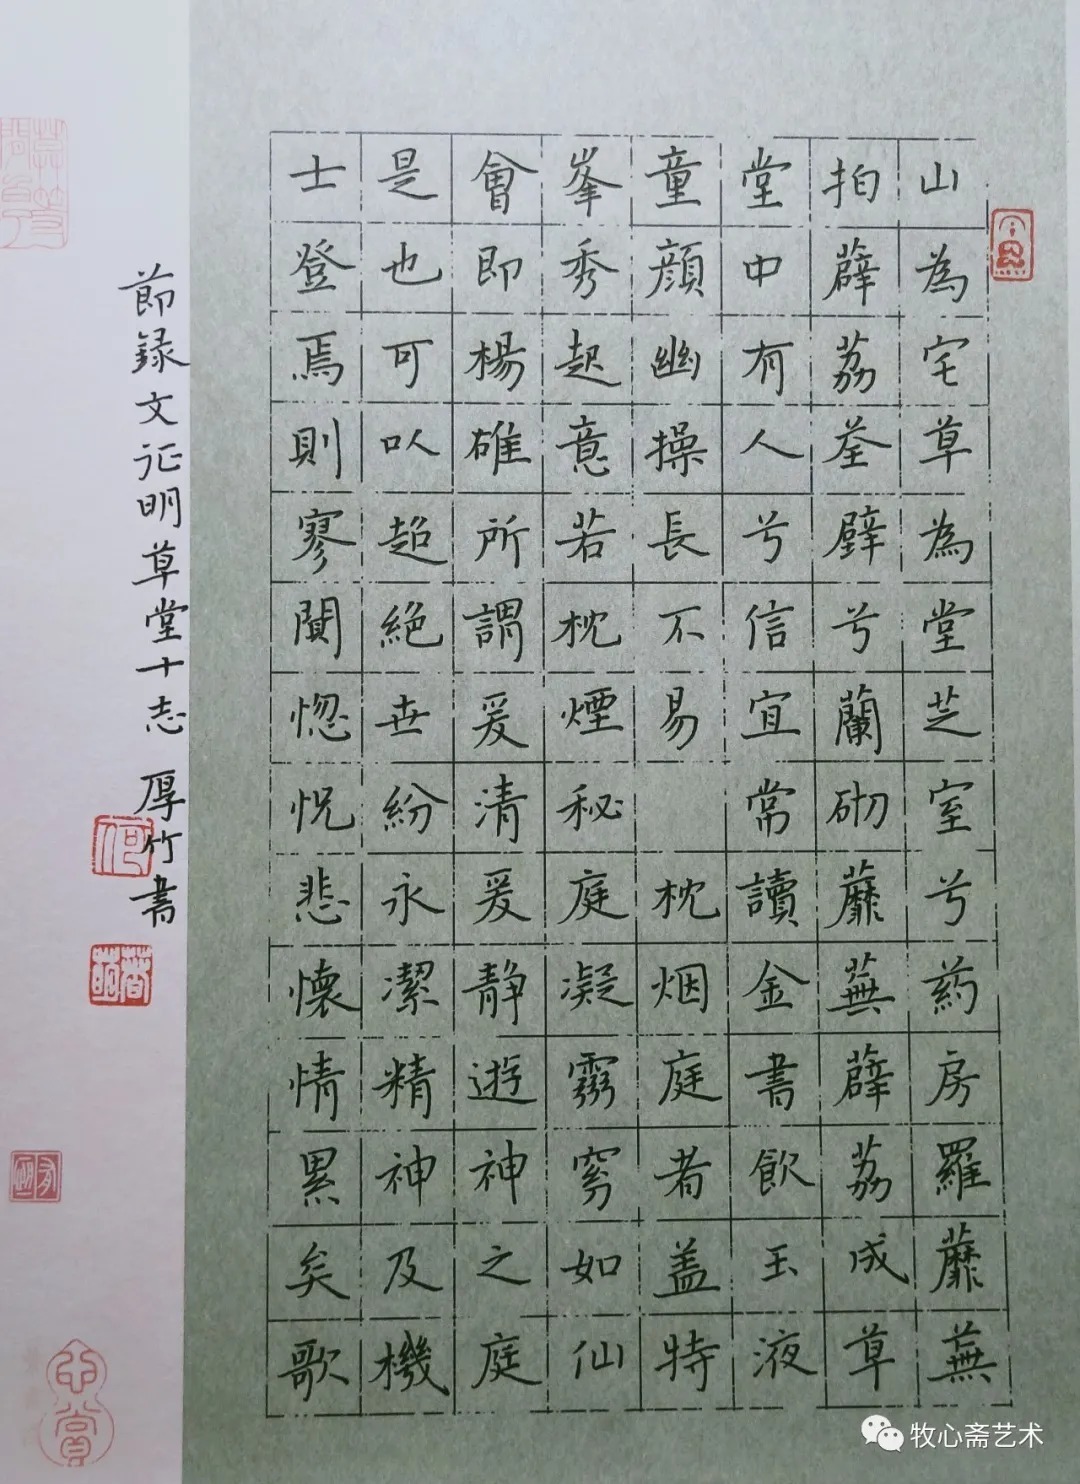 山為宅草為堂芝室兮药房羅蘼蕪
拍薜荔荃壁兮蘭砌蘼蕪薜荔成草
堂中有人兮信宜常讀金書飲玉液
童顔幽操長不易 枕烟庭者盖特
峯秀起意若枕煙秘庭凝霧窈如仙
會即楊雄所謂爰清爰静遊神之庭
是也可以超絶世紛永潔精神及機
士登焉則寥闃惚怳悲懷情累矣歌
節録文征明草堂十志 厚竹書
牧心斋艺术